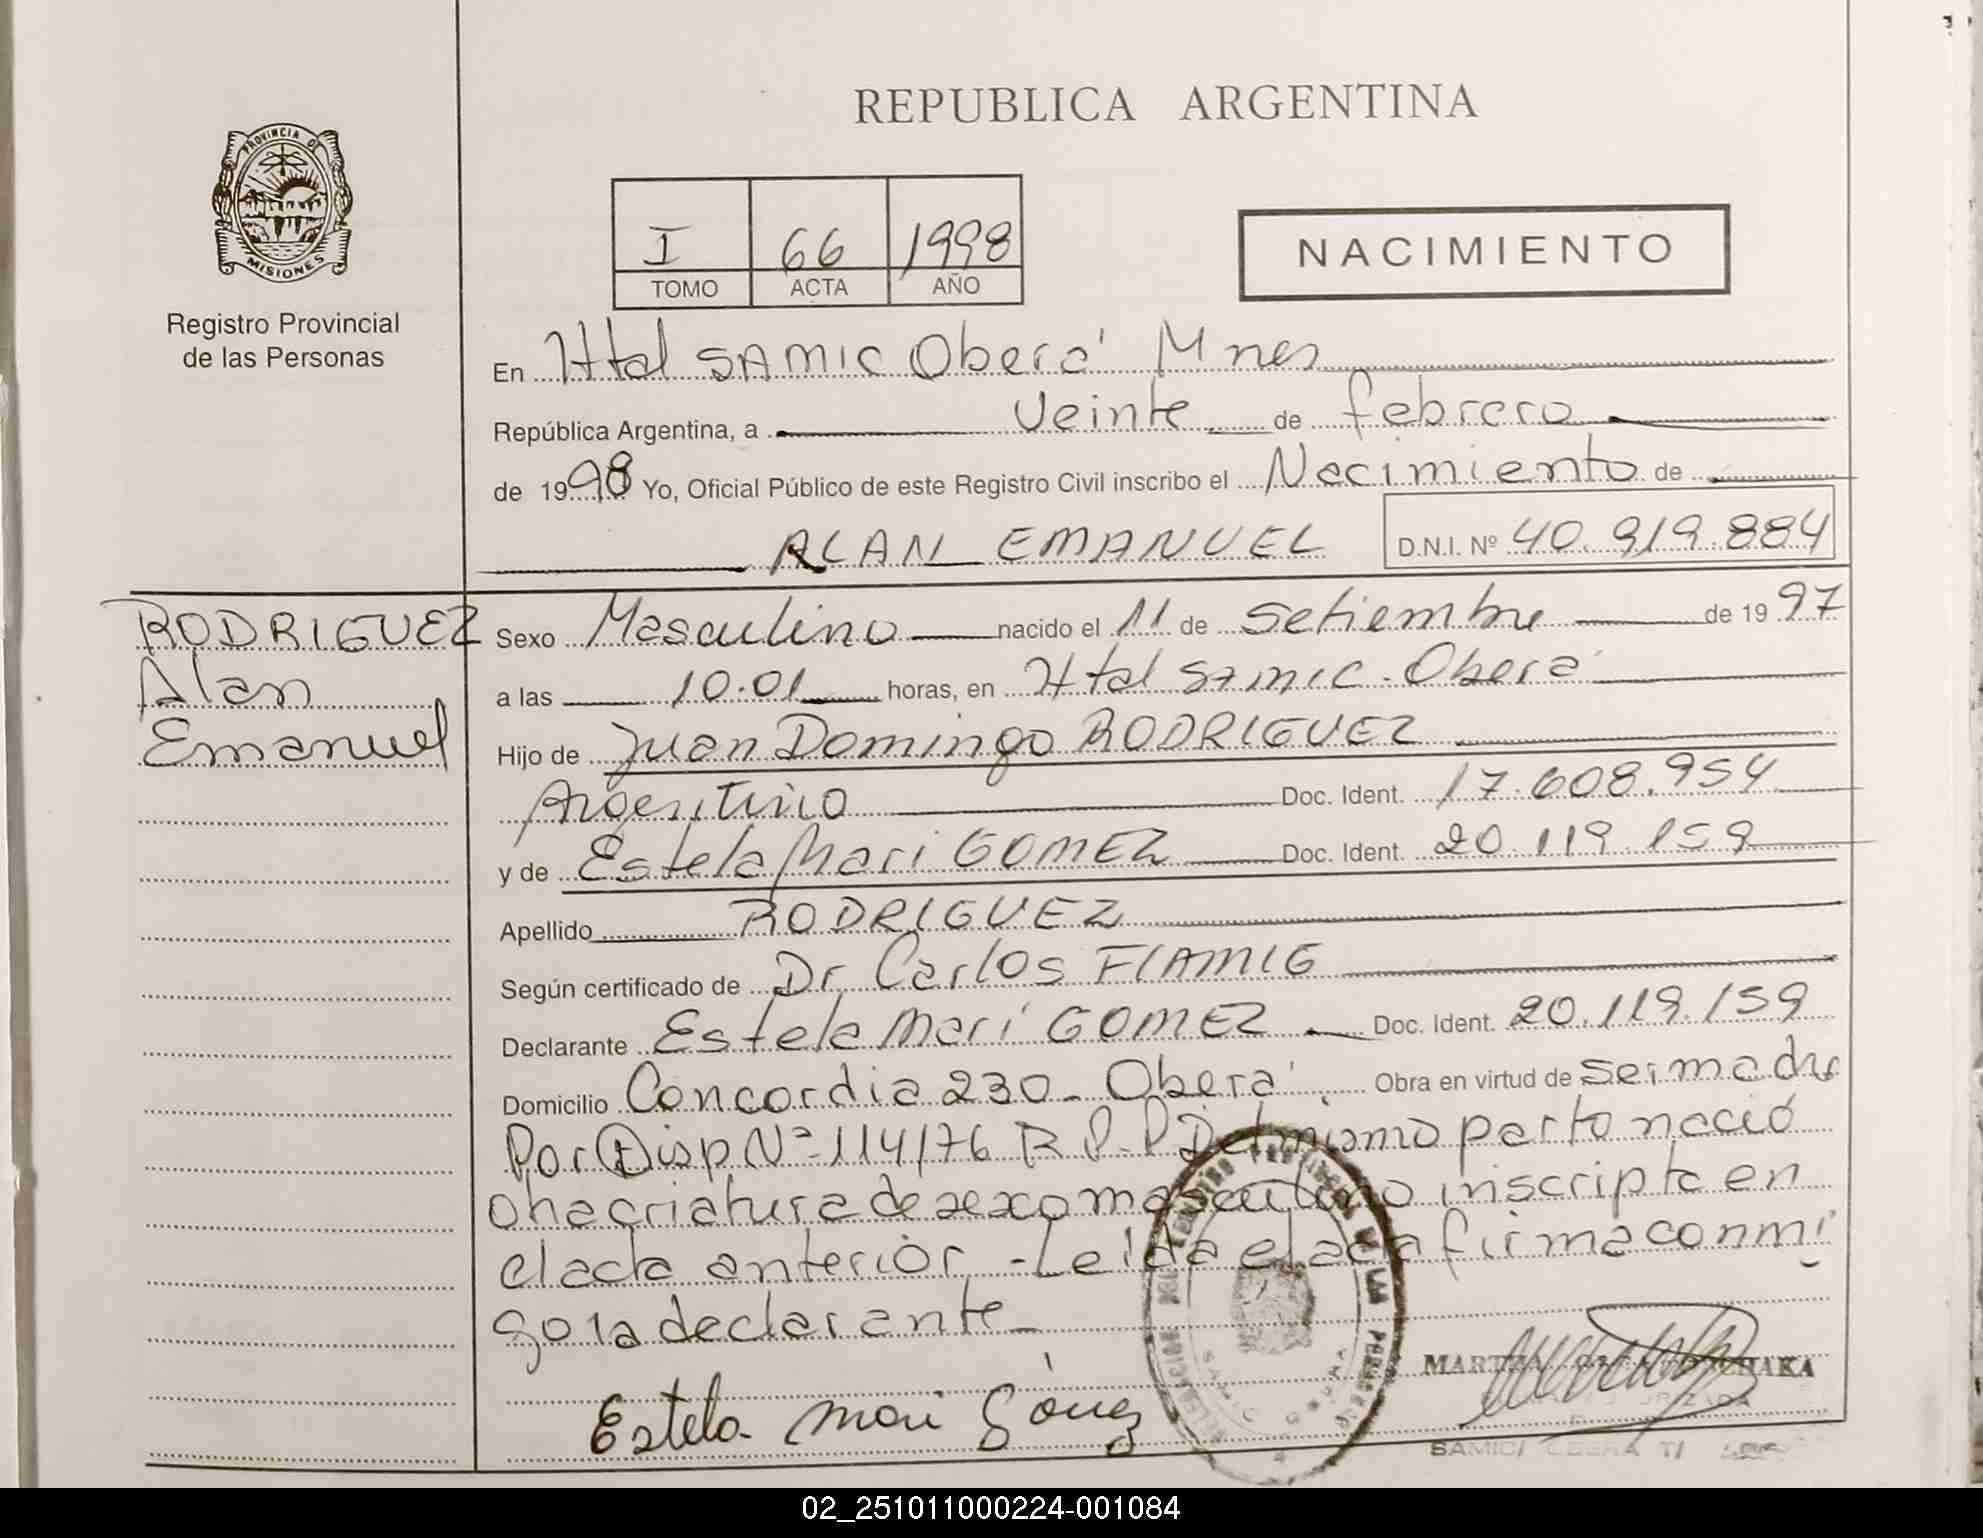 REPUBLICA ARGENTINA
PROVINCIA DE
MISIONES
Registro Provincial
de las Personas
I 66 1998
TOMO ACTA AÑO
NACIMIENTO
En Htal SAMIC Oberá Mnes
República Argentina, a veinte de febrero
de 1998 Yo, Oficial Público de este Registro Civil inscribo el Nacimiento de
ALAN EMANUEL D.N.I. Nº 40.919.884
RODRIGUEZ
Alan
Emanuel
Sexo Masculino nacido el 11 de setiembre de 1997
a las 10.01 horas, en Htal SAMIC. Oberá
Hijo de Juan Domingo RODRIGUEZ
Argentino Doc. Ident. 17.608.954
y de Estela Mari GOMEZ Doc. Ident. 20.119.159
Apellido RODRIGUEZ
Según certificado de Dr Carlos FLAMIG
Declarante Estela Mari GOMEZ Doc. Ident. 20.119.159
Domicilio Concordia 230 - Oberá Obra en virtud de ser madre
Por Disp Nº 114/76 R P. P Del mismo parto nació
una criatura de sexo masculino inscripta en
el acta anterior - Leída el acta firma conmi
go la declarante -
Estela Mari Gómez
MARTA
SAMIC OBERA
02_251011000224-001084